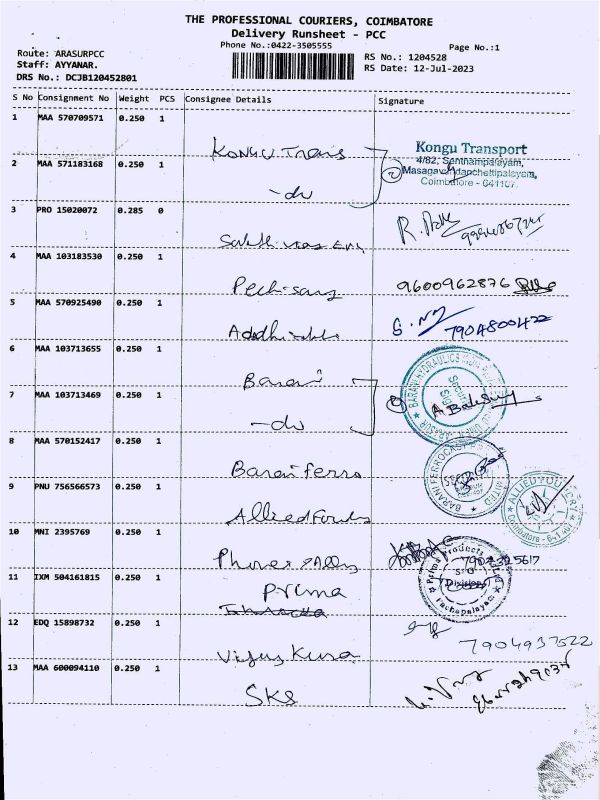 THE PROFESSIONAL COURIERS, COIMBATORE
Delivery Runsheet - PCC
Phone No.:0422-3505555
Page No.:1
Route: ARASURPCC
Staff: AYYANAR.
DRS No.: DCJB120452801
RS No.: 1204528
RS Date: 12-Jul-2023
S No Consignment No Weight PCS Consignee Details Signature
1 MAA 570709571 0.250 1
Kongu Trans
Kongu Transport
4/82, Senthampalayam,
Masagavundanchettipalayam,
Coimbatore - 641107.
2 MAA 571183168 0.250 1
-do
3 PRO 15020072 0.285 0
4 MAA 103183530 0.250 1
9600962876
5 MAA 570925490 0.250 1
7904800422
6 MAA 103713655 0.250 1
Barani
BARANI HYDRAULICS
7 MAA 103713469 0.250 1
-do
8 MAA 570152417 0.250 1
Barani Ferro
BARANI FERROCAST
LIMITED
9 PNU 756566573 0.250 1
Allied Founds
ALLIED FOUNDRY
Coimbatore - 641 407
10 MNI 2395769 0.250 1
11 IXM 504161815 0.250 1
Prima
Prima Products
Division
Pachapalayam
12 EDQ 15898732 0.250 1
Vijay Kumar
7904937522
13 MAA 600094110 0.250 1
SKS